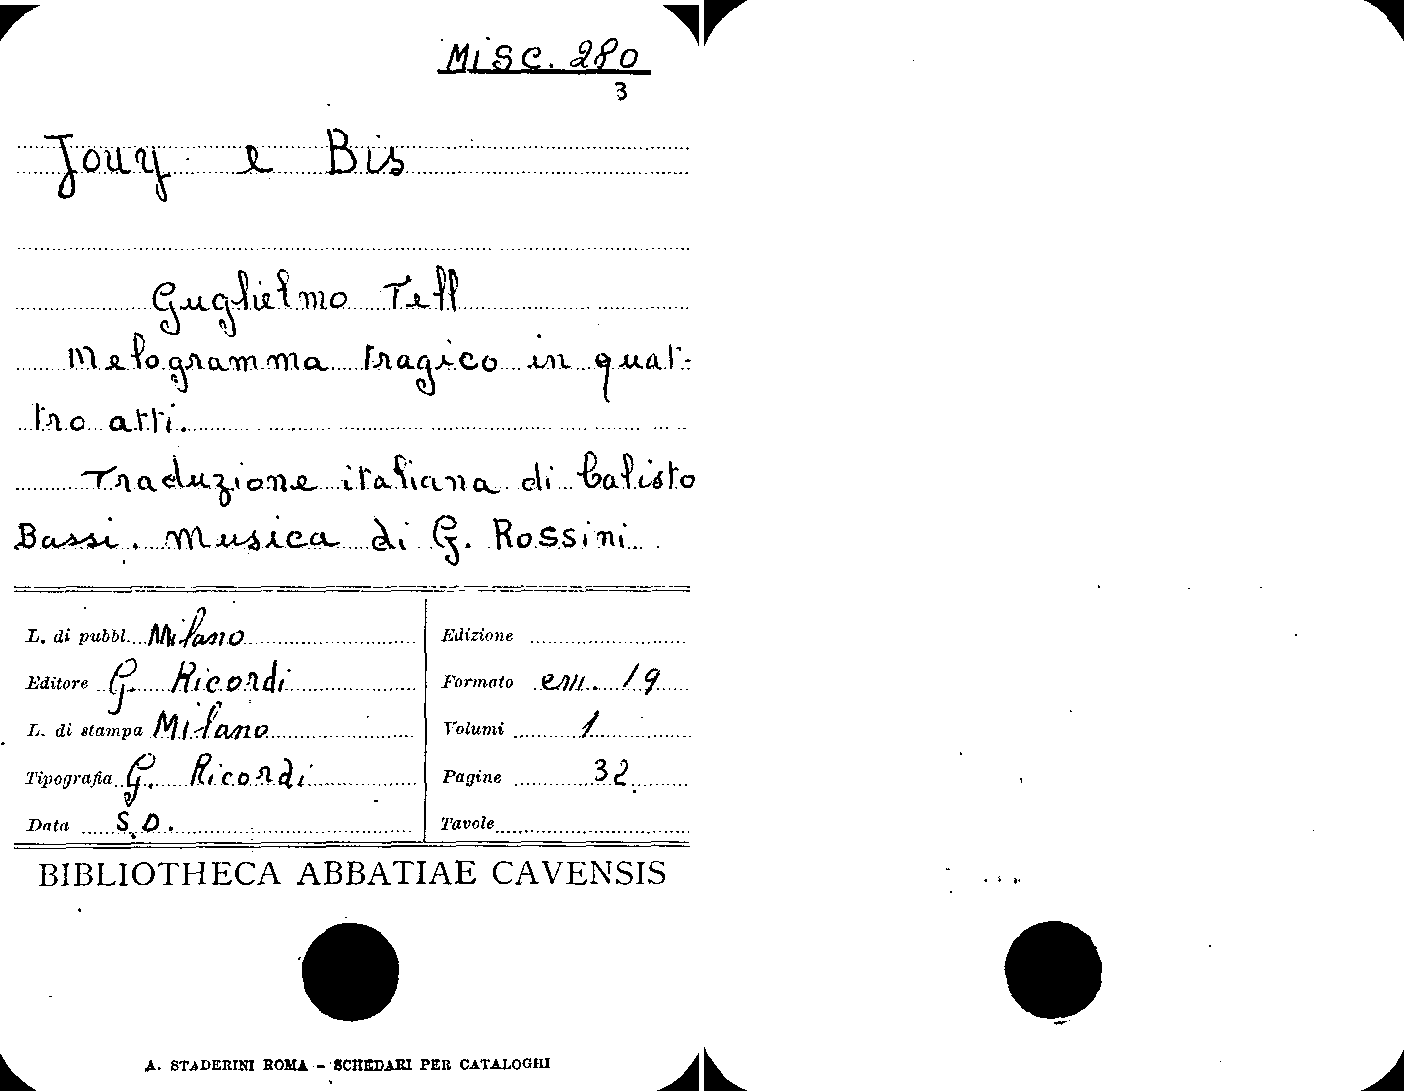 Misc. 280
3
Jouy e Bis
Guglielmo Tell
Melogramma tragico in quat-
tro atti.
Traduzione italiana di Calisto
Bassi. Musica di G. Rossini
L. di pubbl. Milano
Edizione
Editore G. Ricordi
Formato cm. 19
L. di stampa Milano
Volumi 1
Tipografia G. Ricordi
Pagine 32
Data S.D.
Tavole
BIBLIOTHECA ABBATIAE CAVENSIS
A. STADERINI ROMA - SCHEDARI PER CATALOGHI